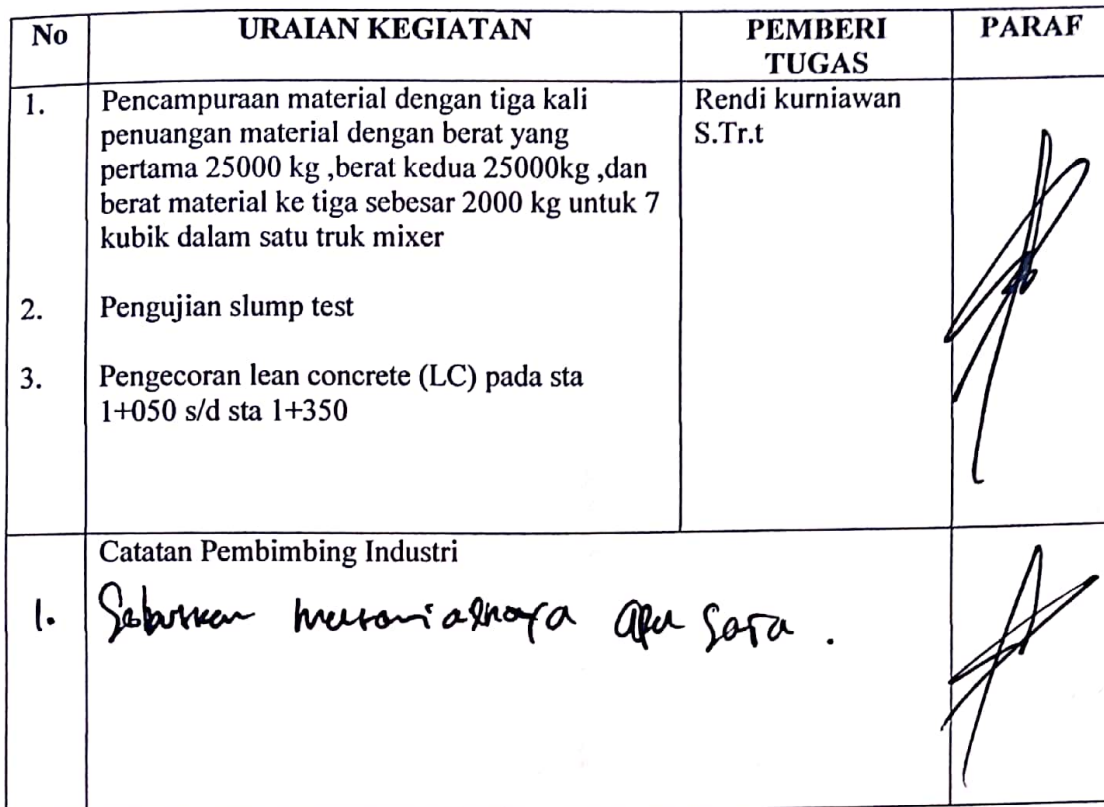 No URAIAN KEGIATAN PEMBERI TUGAS PARAF
1. Pencampuraan material dengan tiga kali
penuangan material dengan berat yang
pertama 25000 kg ,berat kedua 25000kg ,dan
berat material ke tiga sebesar 2000 kg untuk 7
kubik dalam satu truk mixer
Rendi kurniawan
S.Tr.t
2. Pengujian slump test
3. Pengecoran lean concrete (LC) pada sta
1+050 s/d sta 1+350
Catatan Pembimbing Industri
1. Sebutkan materialnya apa saja .